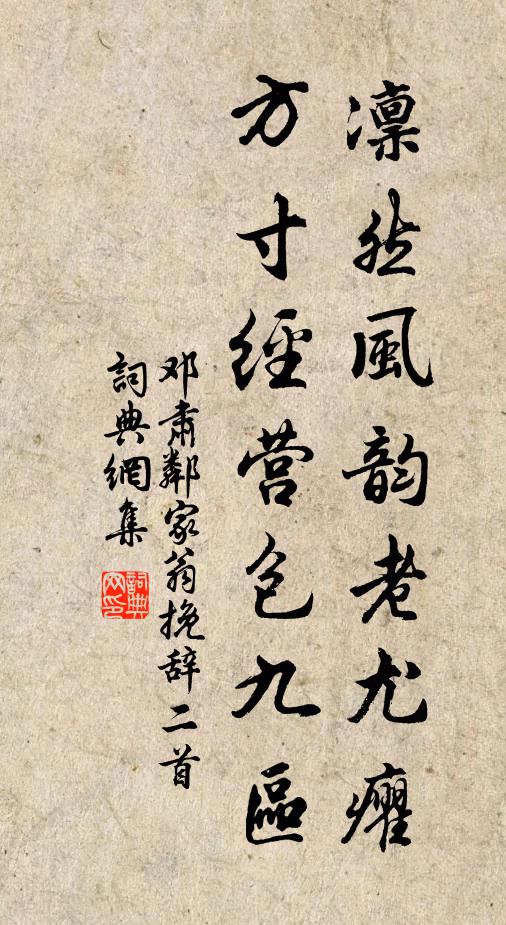 凛然風韵老尤癯
方寸經营包九區
邓肃鄰家翁挽辞二首
詞典網集
詞典网印